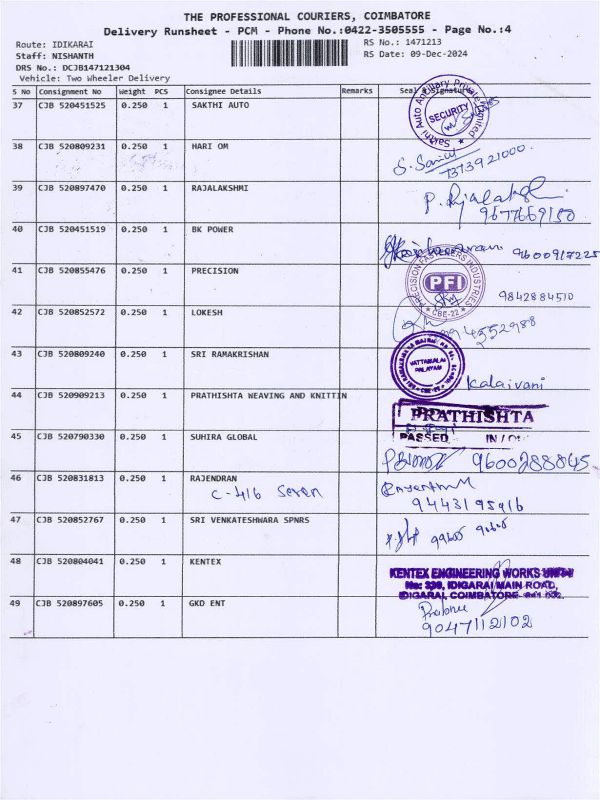 THE PROFESSIONAL COURIERS, COIMBATORE
Delivery Runsheet - PCM - Phone No.:0422-3505555 - Page No.:4
Route: IDIKARAI
RS No.: 1471213
Staff: NISHANTH
RS Date: 09-Dec-2024
DRS No.: DCJB147121304
Vehicle: Two Wheeler Delivery
S No Consignment No Weight PCS Consignee Details Remarks Seal & Signature
37 CJB 520451525 0.250 1 SAKTHI AUTO
Sakthi Auto Ancillary Private Limited
SECURITY
38 CJB 520809231 0.250 1 HARI OM
7373921000
39 CJB 520897470 0.250 1 RAJALAKSHMI
P. Rjalaksh
9677669150
40 CJB 520451519 0.250 1 BK POWER
9600917225
41 CJB 520855476 0.250 1 PRECISION
PRECISION FASTENERS INDUSTRIES
PFI
CBE-22
9842884510
42 CJB 520852572 0.250 1 LOKESH
43 CJB 520809240 0.250 1 SRI RAMAKRISHAN
VATTAMALAI
PALAYAM
Kalaivani
44 CJB 520909213 0.250 1 PRATHISHTA WEAVING AND KNITTIN
PRATHISHTA
PASSED IN /
45 CJB 520790330 0.250 1 SUHIRA GLOBAL
9600288845
46 CJB 520831813 0.250 1 RAJENDRAN
C-416 Seven
9443195916
47 CJB 520852767 0.250 1 SRI VENKATESHWARA SPNRS
48 CJB 520804041 0.250 1 KENTEX
KENTEX ENGINEERING WORKS
IDIGARAI MAIN ROAD,
IDIGARAI, COIMBATORE
49 CJB 520897605 0.250 1 GKD ENT
Prabhu
9047112102